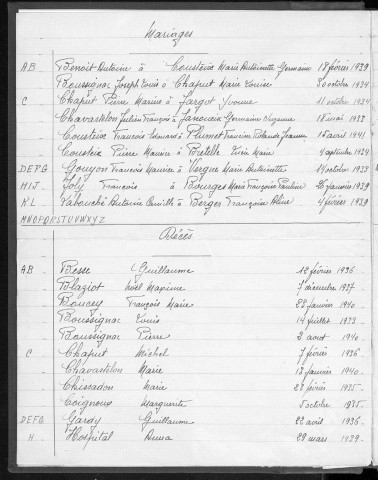 Mariages
AB Benoît Antoine à Cousteix Marie Antoinette Germaine 18 février 1939
Boussignac Joseph Louis à Chaput Marie Louise 30 octobre 1934
C Chaput Pierre Marius à Fargot Yvonne 11 octobre 1934
Chavastelon Julien François à Germaine 18 mai 1933
Cousteix Francois Edouard à Jeanne 16 avril 1941
Cousteix Pierre Maurice à Batelle Marie 4 septembre 1934
DEFG Gouyon Francois Maurice à Vergne Marie Antoinette 14 octobre 1933
HIJ Joly François à Bourges Marie Françoise Pauline 26 janvier 1939
KL Labouche Antoine Camille à Berger Françoise Aline 4 février 1939
MNOPQRSTUVWXYZ
Décès
AB Besse Guillaume 12 février 1936
Blaziot Noël Maxime 7 décembre 1937
Boucey François Marie 29 janvier 1940
Boussignac Louis 14 juillet 1933
Boussignac Pierre 2 aout 1940
C Chaput Michel 7 février 1936
Chavastelon Marie 13 janvier 1940
Chissadon Marie 23 février 1935
Coignoux Marguerite 5 octobre 1935
DEFG Gardy Guillaume 22 avril 1936
H Hospital Anna 29 mars 1939